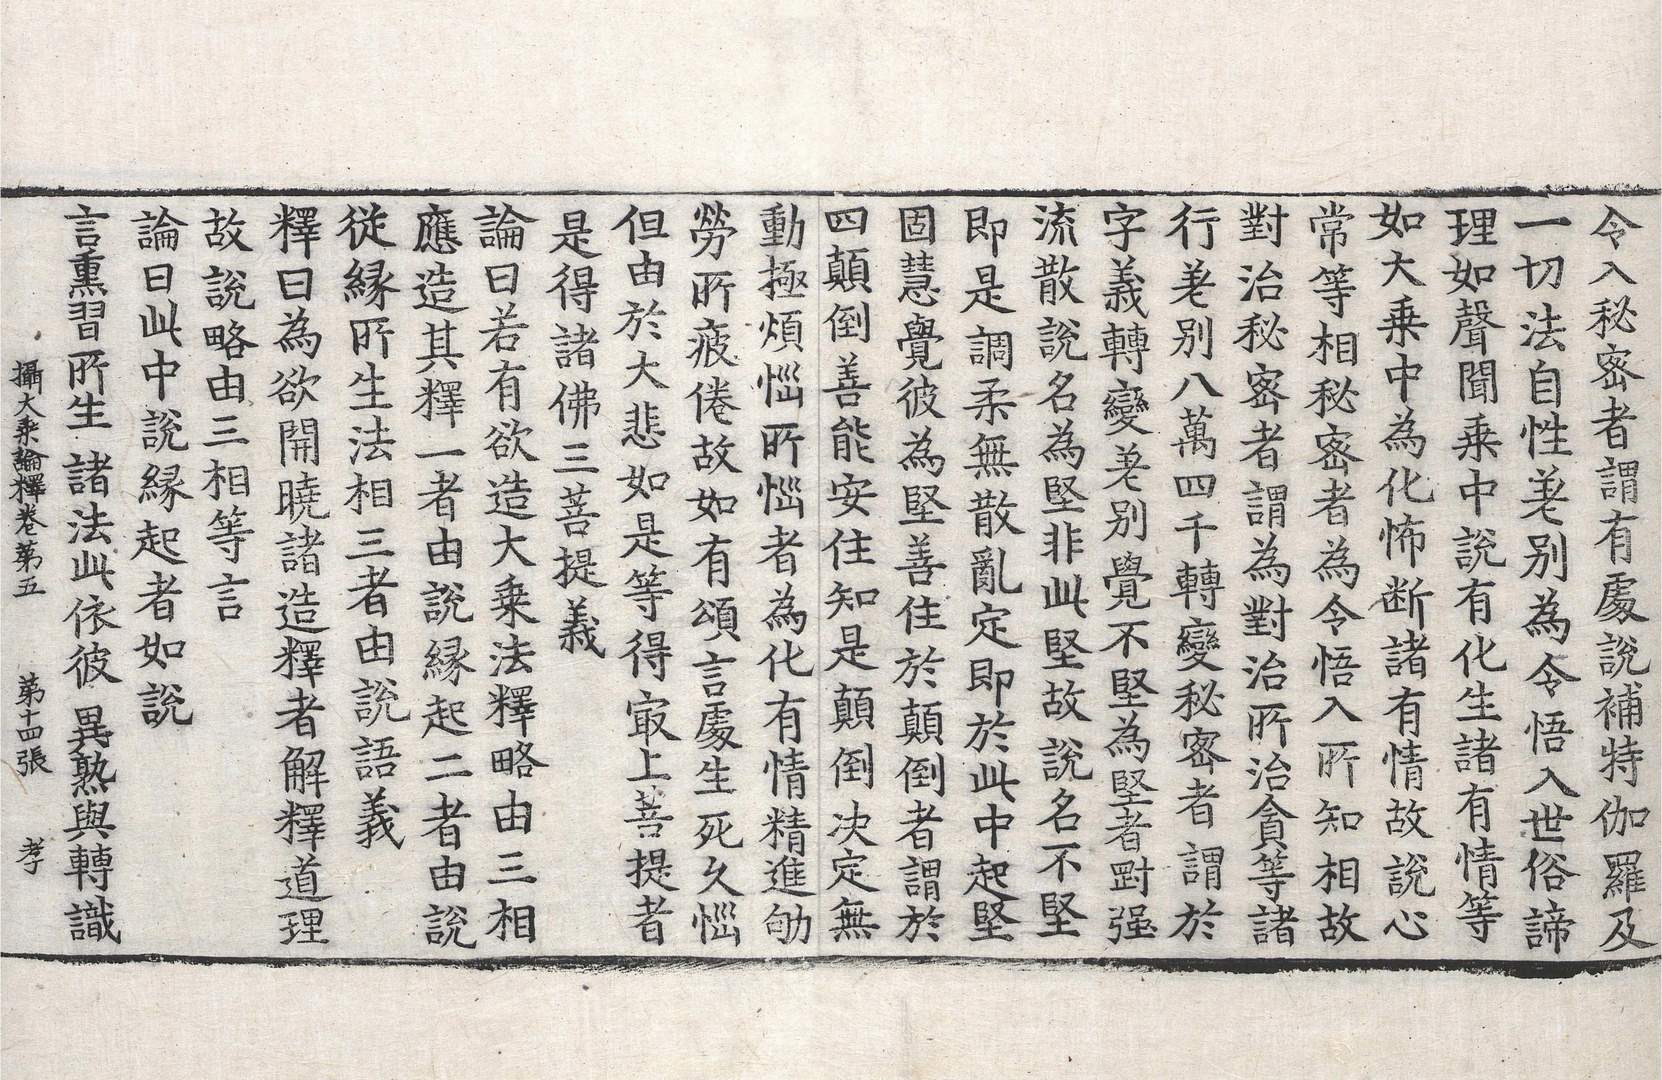 令入秘密者謂有處說補特伽羅及
一切法自性差別為令悟入世俗諦
理如聲聞乗中說有化生諸有情等
如大乗中為化怖断諸有情故說心
常等相秘密者為令悟入所知相故
對治秘密者謂為對治所治貪等諸
行差別八萬四千轉變秘密者謂於
字義轉變差別覺不堅為堅者剛强
流散說名為堅非此堅故說名不堅
即是調柔無散亂定即於此中起堅
固慧覺彼為堅善住於顛倒者謂於
四顛倒善能安住知是顛倒决定無
動極煩惱所惱者為化有情精進劬
勞所疲倦故如有頌言處生死久惱
但由於大悲如是等得㝡上菩提者
是得諸佛三菩提義
論曰若有欲造大乗法釋略由三相
應造其釋一者由說縁起二者由說
從縁所生法相三者由說語義
釋曰為欲開曉諸造釋者解釋道理
故說略由三相等言
論曰此中說縁起者如說
言熏習所生諸法此依彼異熟與轉識
攝大乗論釋卷第五 第十四張 孝